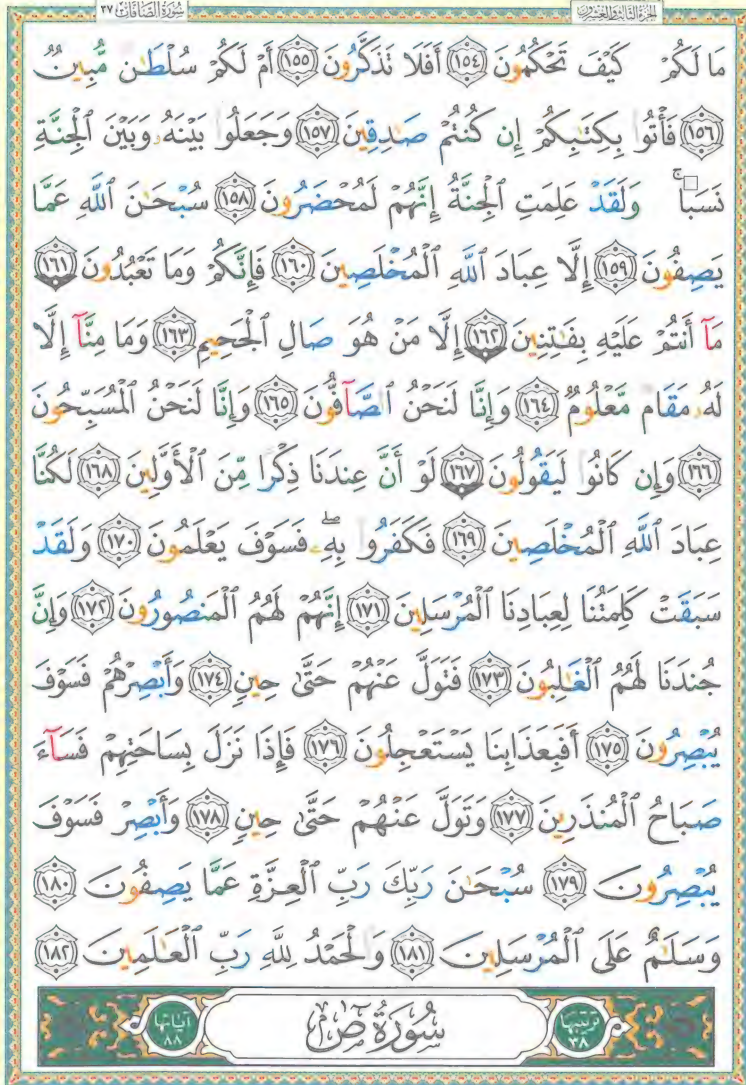 الجزء الثالث والعشرون سورة الصافات ٣٧
مَا لَكُمْ كَيْفَ تَحْكُمُونَ ١٥٤ أَفَلَا تَذَكَّرُونَ ١٥٥ أَمْ لَكُمْ سُلْطَٰنٌ مُّبِينٌ
١٥٦ فَأْتُوا۟ بِكِتَٰبِكُمْ إِن كُنتُمْ صَٰدِقِينَ ١٥٧ وَجَعَلُوا۟ بَيْنَهُۥ وَبَيْنَ ٱلْجِنَّةِ
نَسَبًا ۚ وَلَقَدْ عَلِمَتِ ٱلْجِنَّةُ إِنَّهُمْ لَمُحْضَرُونَ ١٥٨ سُبْحَٰنَ ٱللَّهِ عَمَّا
يَصِفُونَ ١٥٩ إِلَّا عِبَادَ ٱللَّهِ ٱلْمُخْلَصِينَ ١٦٠ فَإِنَّكُمْ وَمَا تَعْبُدُونَ ١٦١
مَآ أَنتُمْ عَلَيْهِ بِفَٰتِنِينَ ١٦٢ إِلَّا مَنْ هُوَ صَالِ ٱلْجَحِيمِ ١٦٣ وَمَا مِنَّآ إِلَّا
لَهُۥ مَقَامٌ مَّعْلُومٌ ١٦٤ وَإِنَّا لَنَحْنُ ٱلصَّآفُّونَ ١٦٥ وَإِنَّا لَنَحْنُ ٱلْمُسَبِّحُونَ
١٦٦ وَإِن كَانُوا۟ لَيَقُولُونَ ١٦٧ لَوْ أَنَّ عِندَنَا ذِكْرًا مِّنَ ٱلْأَوَّلِينَ ١٦٨ لَكُنَّا
عِبَادَ ٱللَّهِ ٱلْمُخْلَصِينَ ١٦٩ فَكَفَرُوا۟ بِهِۦ ۖ فَسَوْفَ يَعْلَمُونَ ١٧٠ وَلَقَدْ
سَبَقَتْ كَلِمَتُنَا لِعِبَادِنَا ٱلْمُرْسَلِينَ ١٧١ إِنَّهُمْ لَهُمُ ٱلْمَنصُورُونَ ١٧٢ وَإِنَّ
جُندَنَا لَهُمُ ٱلْغَٰلِبُونَ ١٧٣ فَتَوَلَّ عَنْهُمْ حَتَّىٰ حِينٍ ١٧٤ وَأَبْصِرْهُمْ فَسَوْفَ
يُبْصِرُونَ ١٧٥ أَفَبِعَذَابِنَا يَسْتَعْجِلُونَ ١٧٦ فَإِذَا نَزَلَ بِسَاحَتِهِمْ فَسَآءَ
صَبَاحُ ٱلْمُنذَرِينَ ١٧٧ وَتَوَلَّ عَنْهُمْ حَتَّىٰ حِينٍ ١٧٨ وَأَبْصِرْ فَسَوْفَ
يُبْصِرُونَ ١٧٩ سُبْحَٰنَ رَبِّكَ رَبِّ ٱلْعِزَّةِ عَمَّا يَصِفُونَ ١٨٠
وَسَلَٰمٌ عَلَى ٱلْمُرْسَلِينَ ١٨١ وَٱلْحَمْدُ لِلَّهِ رَبِّ ٱلْعَٰلَمِينَ ١٨٢
ترتيبها ٣٨ سُورَةُ صٓ آياتها ٨٨